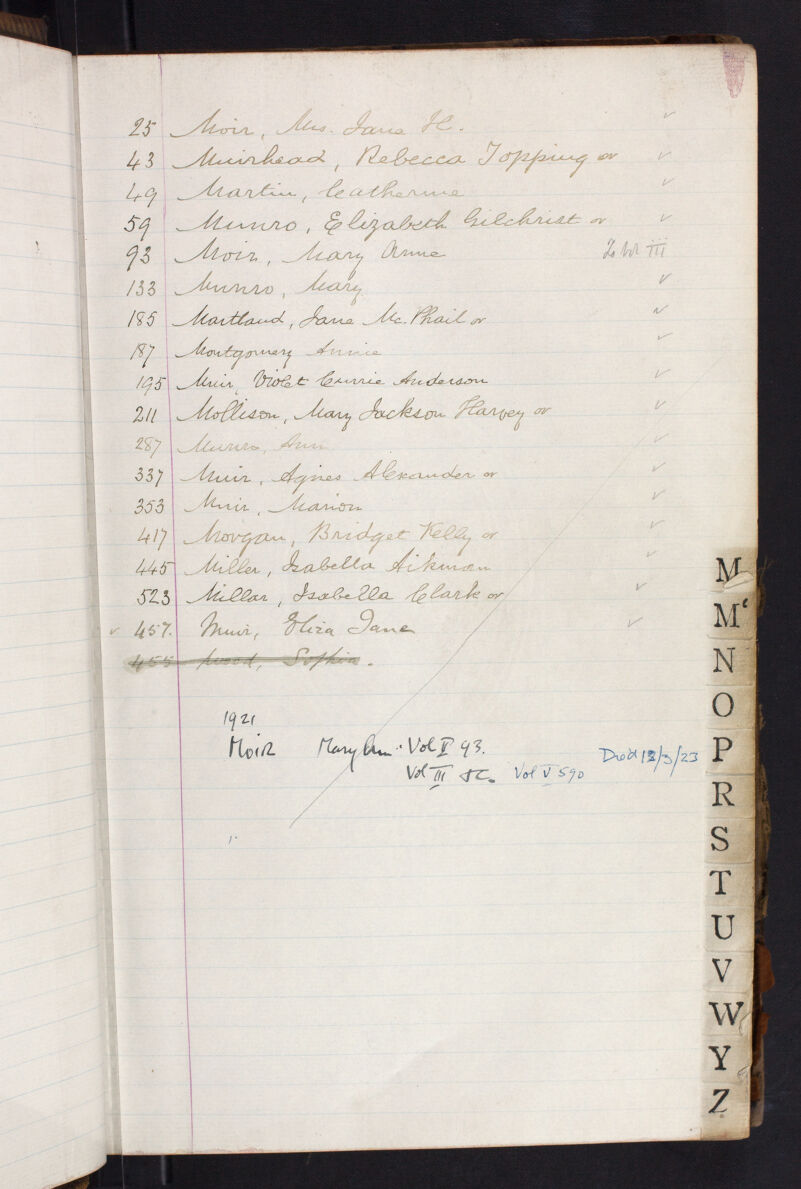 25 Moir, Mrs. Jane H. ✓
43 Muirhead, Rebecca Topping or ✓
49 Martin, Catherine ✓
59 Munro, Elizabeth Gilchrist or ✓
93 Moir, Mary Anne To Vol III
133 Munro, Mary ✓
185 Maitland, Jane McPhail or ✓
187 Montgomery Annie ✓
195 Muir, Violet Currie Anderson ✓
211 Mollison, Mary Jackson Harvey or ✓
287 Munro, Ann ✓
337 Muir, Agnes Alexander or ✓
353 Muir, Marion ✓
417 Morgan, Bridget Kelly or ✓
445 Miller, Isabella Aikman ✓
523 Millar, Isabella Clark or ✓
✓ 457. Muir, Eliza Jane ✓
455 Sophia.
1921
Moir Mary Ann Vol II 93.
Vol III &c. Vol V 590 Died 13/3/23
M
Mc
N
O
P
R
S
T
U
V
W
Y
Z